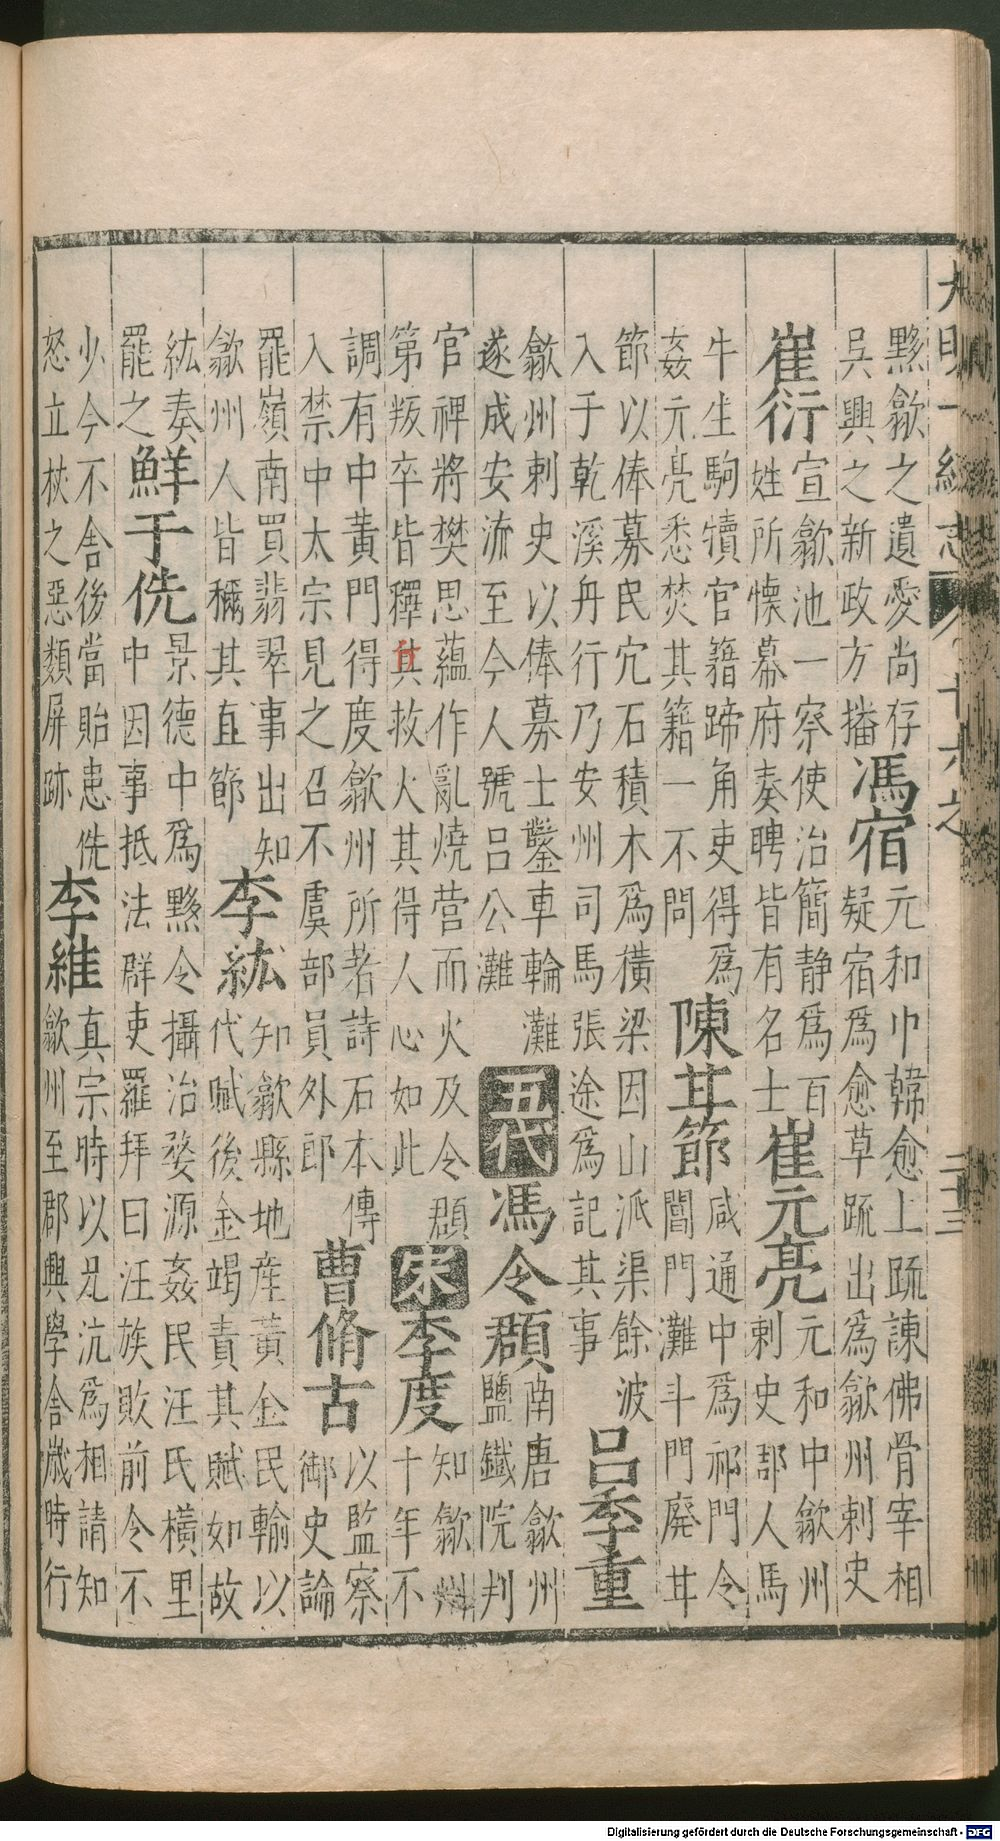 大明一統志
十六之
二十三
黟歙之遺愛尚存
吳興之新政方播
馮宿
元和中韓愈上疏諫佛骨宰相
疑宿爲愈草疏出爲歙州刺史
崔衍
宣歙池一察使治簡静爲百
姓所懷幕府奏聘皆有名士
崔元亮
元和中歙州
刺史郡人馬
牛生駒犢官籍蹄角吏得爲
姦元亮悉焚其籍一不問
陳甘節
咸通中爲祁門令
閶門灘斗門廢甘
節以俸募民宂石積木爲橫梁因山派渠餘波
入于乾溪舟行乃安州司馬張途爲記其事
呂季重
歙州刺史以俸募士鑿車輪灘
遂成安流至今人號呂公灘
五代
馮令頵
南唐歙州
鹽鐵院判
官裨將樊思蘊作亂燒营而火及令頵
第叛卒皆釋兵救火其得人心如此
宋
李度
知歙州
十年不
調有中黃門得度歙州所著詩石本傳
入禁中太宗見之召不虞部員外郎
曹脩古
以監察
御史論
罷嶺南買翡翠事出知
歙州人皆穪其直節
李紘
知歙縣地産黃金民輸以
代賦後金竭責其賦如故
紘奏
罷之
鮮于侁
景德中爲黟令攝治婺源姦民汪氏橫里
中因事抵法群吏羅拜曰汪族敗前令不
少今不舍後當貽患侁
怒立杖之惡類屏跡
李維
真宗時以兄沆爲相請知
歙州至郡興學舍歲時行
Digitalisierung gefördert durch die Deutsche Forschungsgemeinschaft - DFG